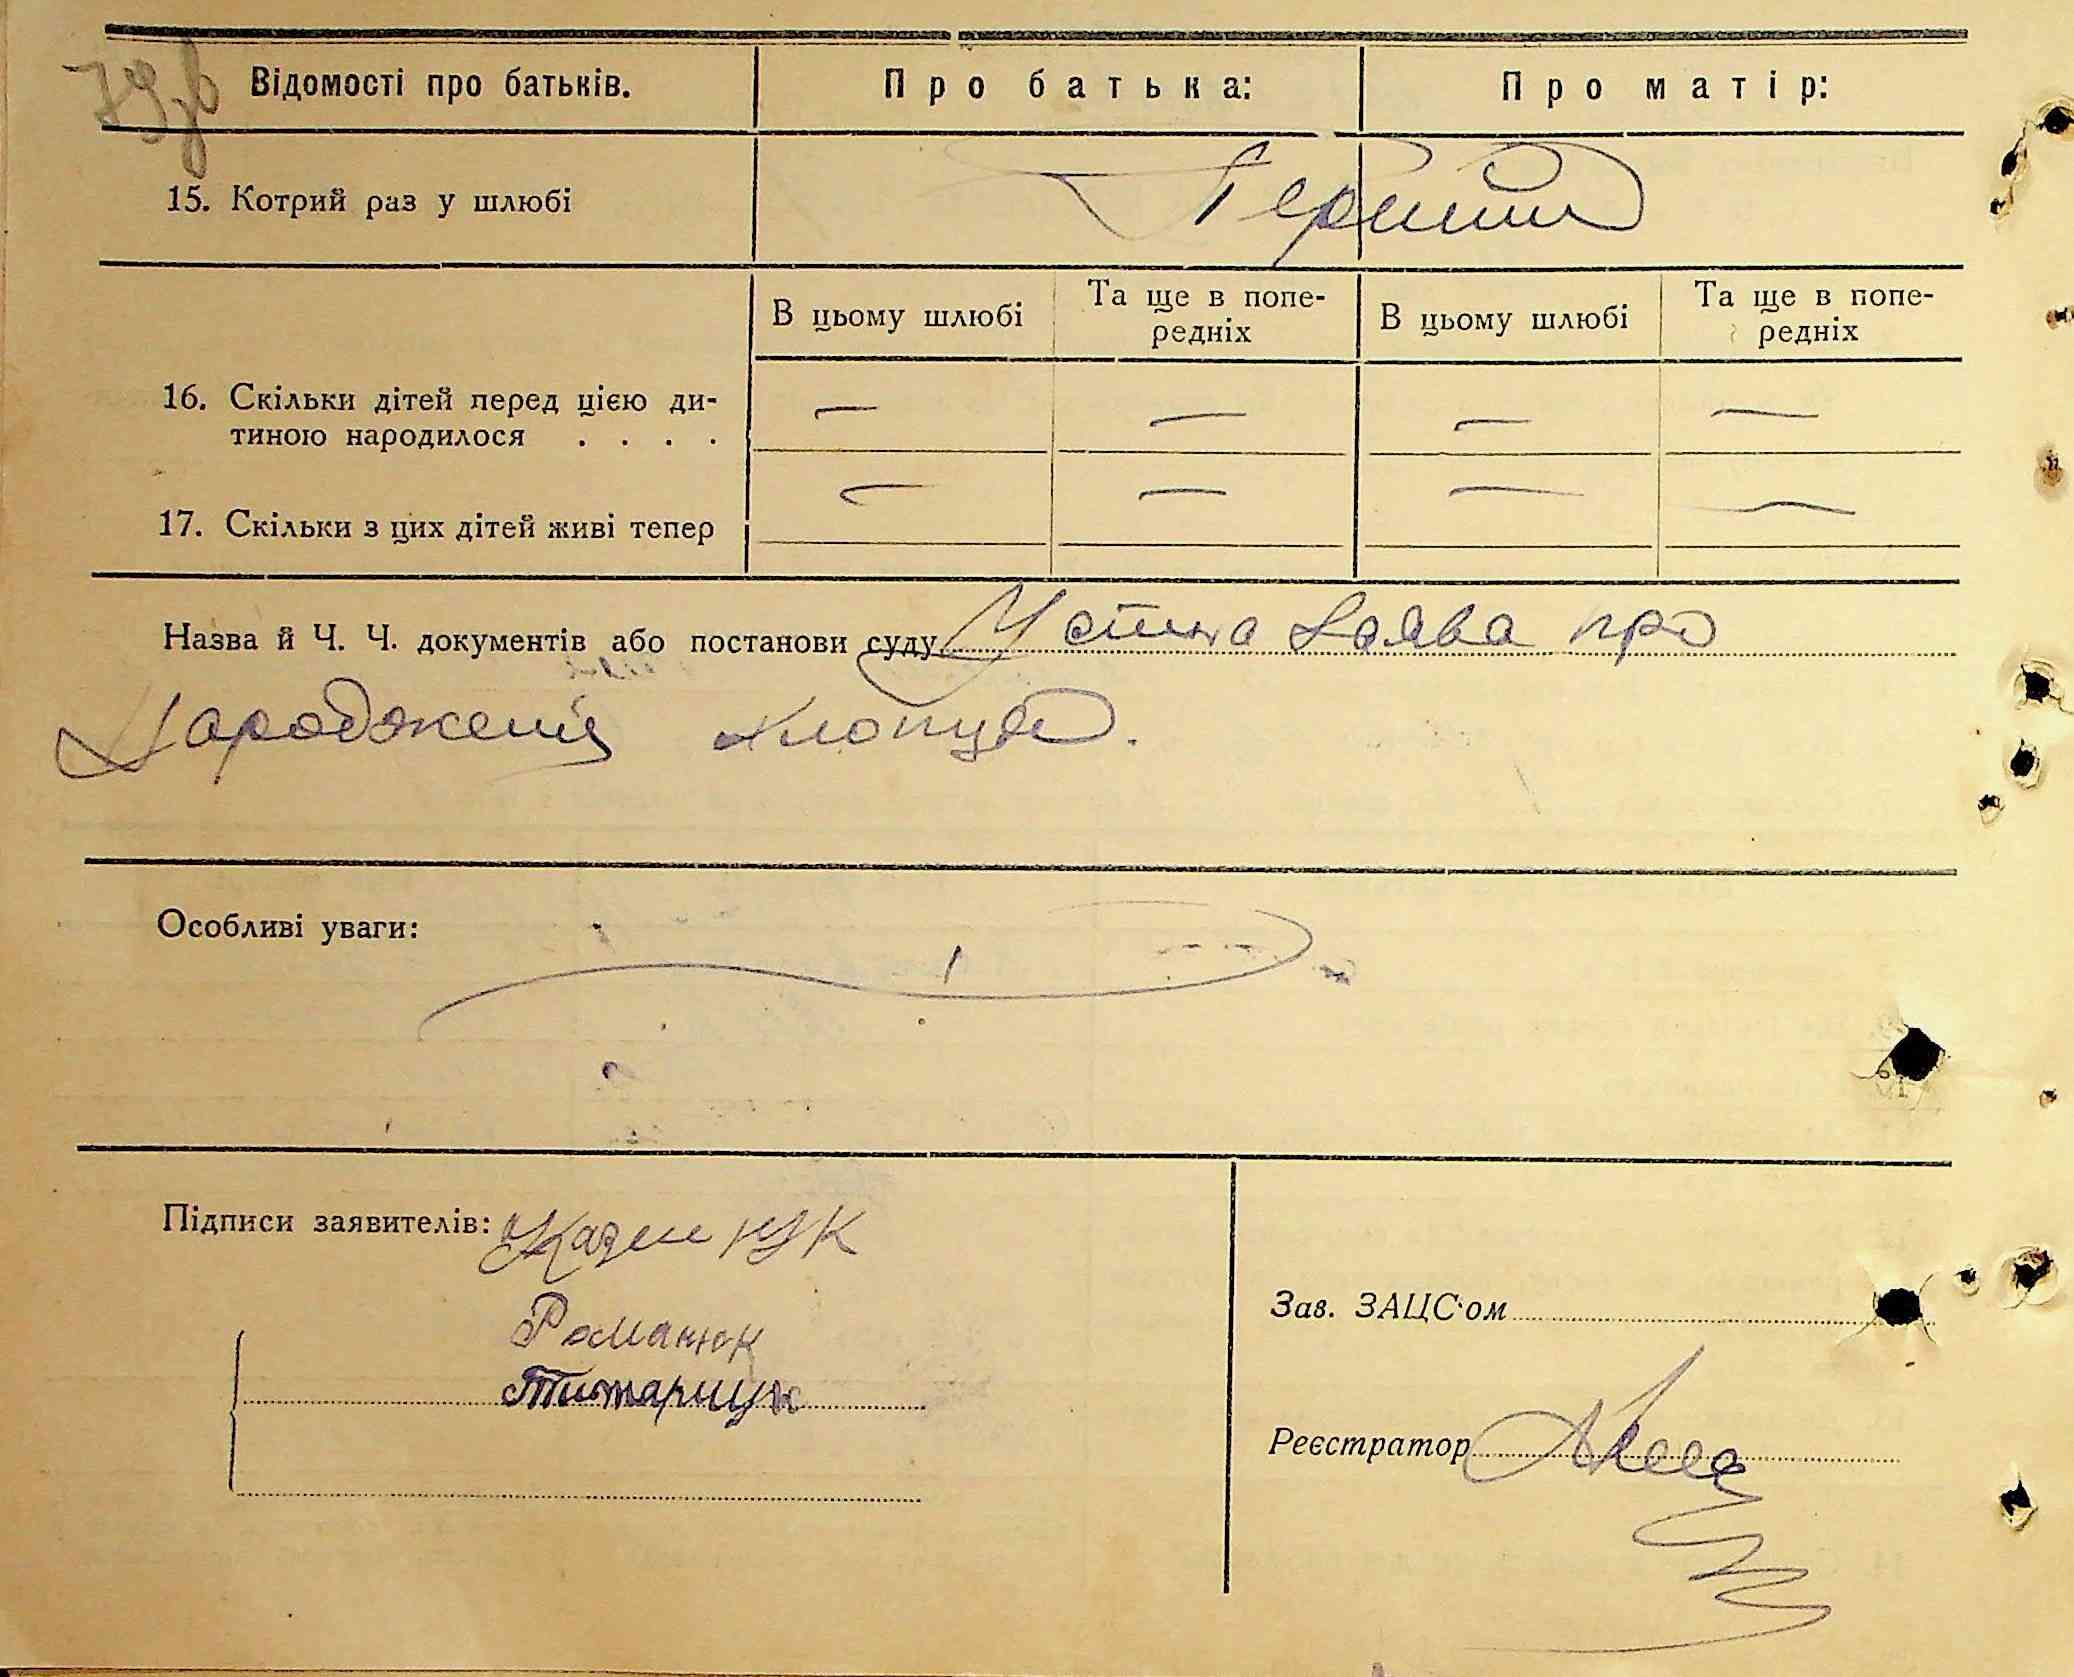 79зв
Відомості про батьків. Про батька: Про матір:
15. Котрий раз у шлюбі Перший
В цьому шлюбі Та ще в попе- В цьому шлюбі Та ще в попе-
редніх редніх
16. Скільки дітей перед цією ди- — — — —
тиною народилося . . . .
17. Скільки з цих дітей живі тепер — — — —
Назва й Ч. Ч. документів або постанови суду Устна заява про
народження хлопця.
Особливі уваги:
Підписи заявителів:
Романюк
Титарчук
Зав. ЗАЦС'ом
Реєстратор